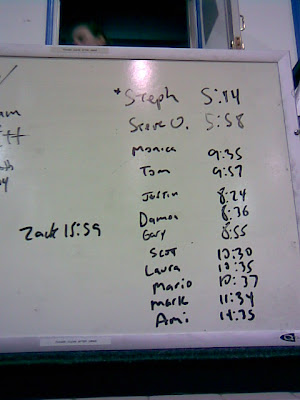 *Steph 5:14
Steve O. 5:58
Monica 9:35
Tom 9:57
Justin 8:24
Damon 8:36
Gary 8:55
Zack 15:59
Scot 10:30
Laura 10:35
Mario 10:37
Mark 11:34
Ami 14:35